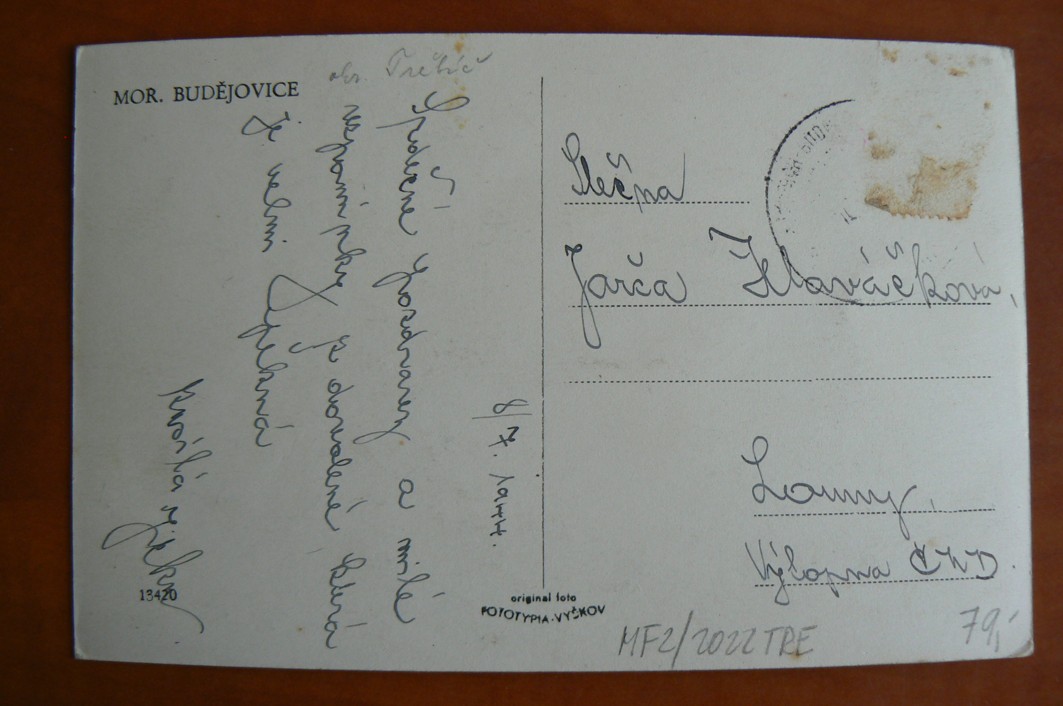 MOR. BUDĚJOVICE
okr. Třebíč
8/7. 1944.
Srdečné pozdravy a milé
vzpomínky z dovolené která
je velmi pěkná
13420
original foto
FOTOTYPIA-VYŠKOV
Slečna
Jarča Hlaváčková,
Louny,
Výtopna
MF2/2022TRE
79,-